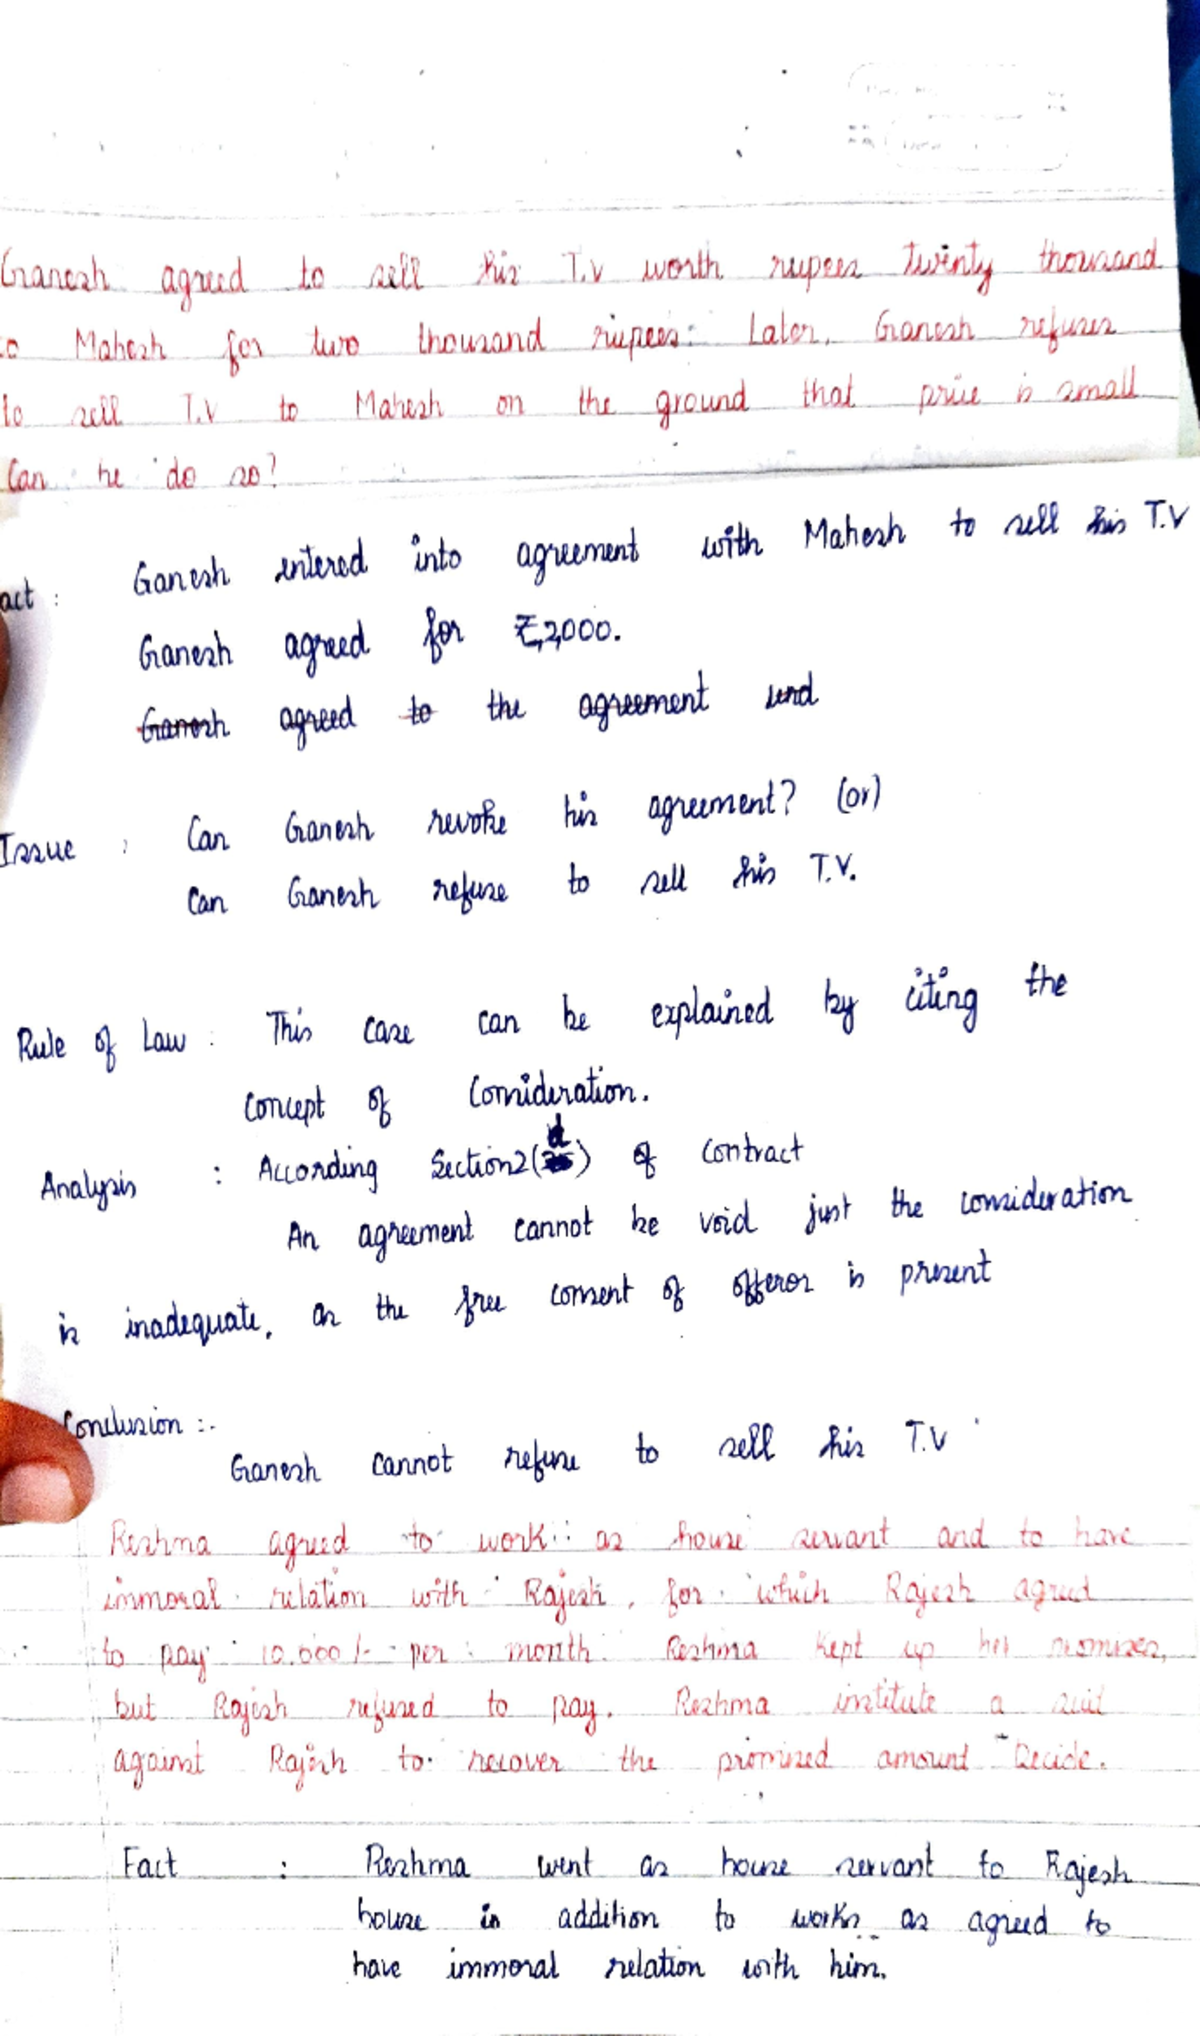 Ganesh agreed to sell his T.V worth rupees twinty thousand
o Mahesh for two thousand rupees. Later, Ganesh refuses
to sell T.V to Mahesh on the ground that price is small
Can he do so?
act : Ganesh entered into agreement with Mahesh to sell his T.V
Ganesh agreed for ₹2,000.
Ganesh agreed to the agreement und
Issue : Can Ganesh revoke his agreement? (or)
Can Ganesh refuse to sell his T.V.
Rule of Law : This case can be explained by citing the
concept of Consideration.
Analysis : According Section2(d) of contract
An agreement cannot be void just the consideration
is inadequate, as the free consent of offeror is present
Conclusion :-
Ganesh cannot refuse to sell his T.V
Reshma agreed to work as house servant and to have
immoral relation with Rajesh, for which Rajesh agreed
to pay 10.000/- per month. Reshma kept up her promises,
but Rajesh refused to pay. Reshma institute a suit
against Rajesh to recover the promised amount Decide.
Fact : Reshma went as house servant to Rajesh
house in addition to works as agreed to
have immoral relation with him.